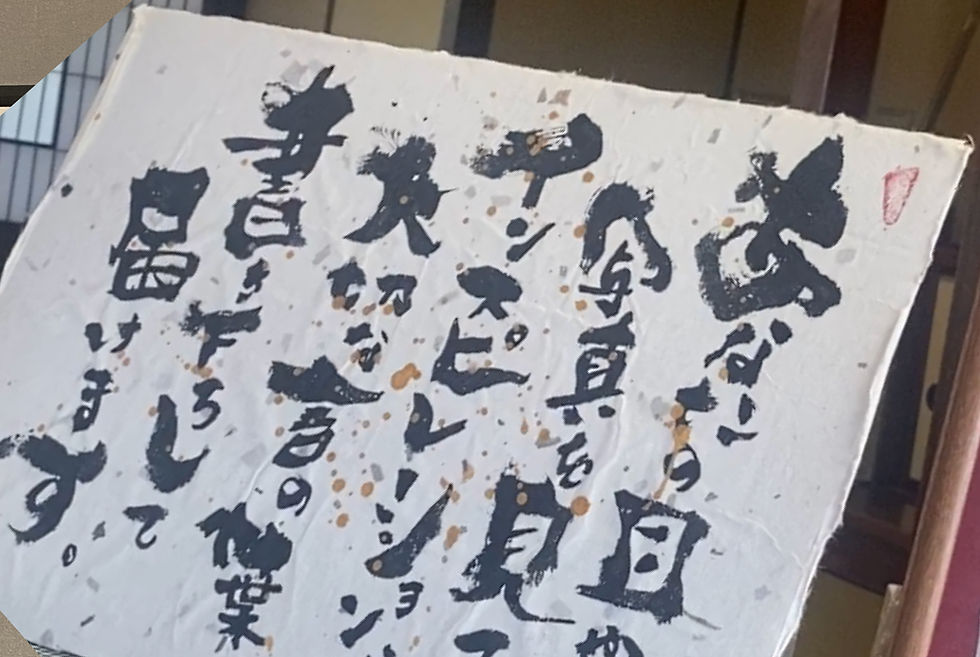 あなたの目
写真を見て
インスピレーション
大切なの葉
書き下ろして
届けます。